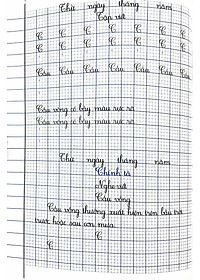 Thứ ngày tháng năm
Tập viết
C C C C C C C
C C C C C C C
Cầu Cầu Cầu Cầu Cầu Cầu Cầu
Cầu vồng có bảy màu rực rỡ
Cầu vồng có bảy màu rực rỡ
Thứ ngày tháng năm
Chính tả
Nghe viết
Cầu vồng
Cầu vồng thường xuất hiện trên bầu trời
trước hoặc sau cơn mưa.
C
C